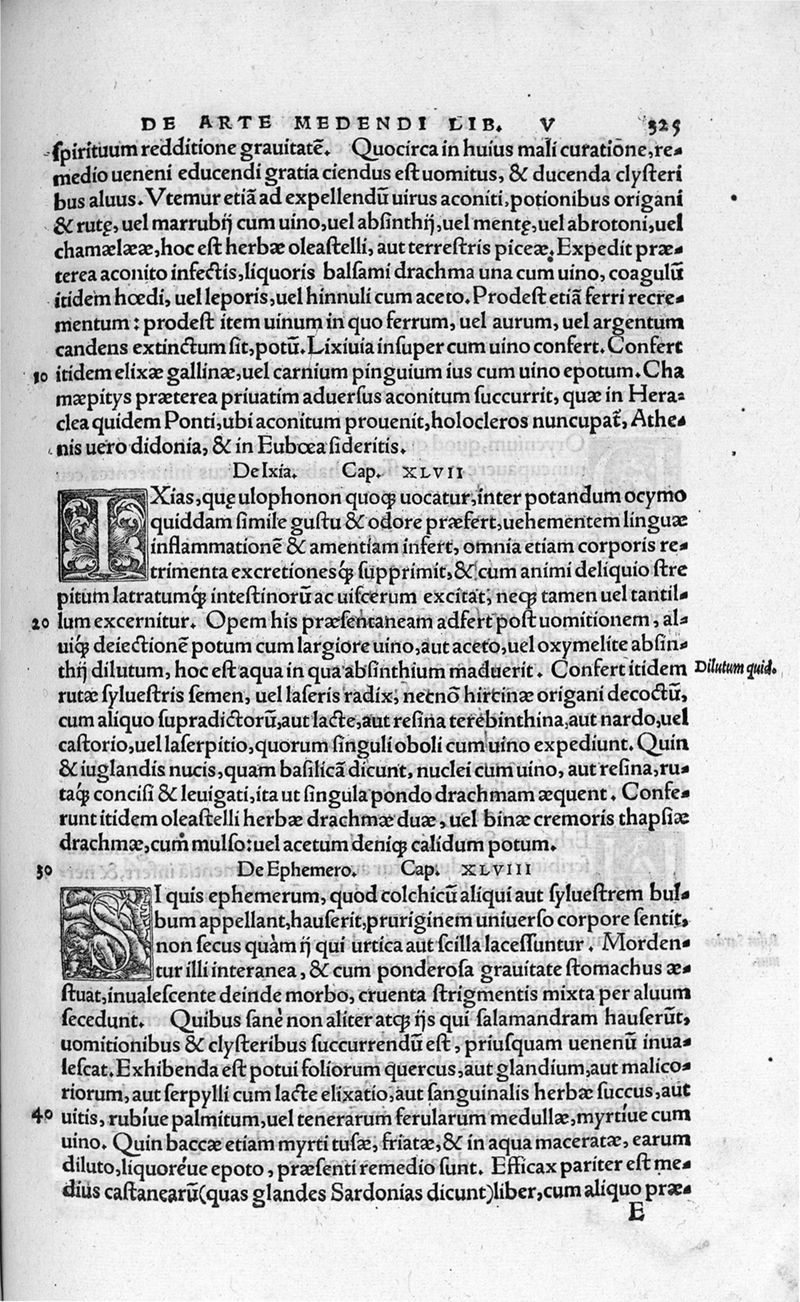 DE ARTE MEDENDI LIB. V 325
ſpirituum redditione grauitatē. Quocirca in huius mali curatiōne, re-
medio ueneni educendi gratia ciendus eſt uomitus, & ducenda clyſteri
bus aluus. Vtemur etiā ad expellendū uirus aconiti, potionibus origani
& rutę, uel marrubij cum uino, uel abſinthij, uel mentę, uel abrotoni, uel
chamælææ, hoc eſt herbæ oleaſtelli, aut terreſtris piceæ. Expedit præ-
terea aconito infectis, liquoris balſami drachma una cum uino, coagulū
itidem hœdi, uel leporis, uel hinnuli cum aceto. Prodeſt etiā ferri recre-
mentum: prodeſt item uinum in quo ferrum, uel aurum, uel argentum
candens extinctum ſit, potū. Lixiuia inſuper cum uino confert. Confert
10 itidem elixæ gallinæ, uel carnium pinguium ius cum uino epotum. Cha
mæpitys præterea priuatim aduerſus aconitum ſuccurrit, quæ in Hera-
clea quidem Ponti, ubi aconitum prouenit, holocleros nuncupat᷑, Athe-
nis uero didonia, & in Eubœa ſideritis.
De Ixia. Cap. XLVII
IXias, quę ulophonon quoqꝫ uocatur, inter potandum ocymo
quiddam ſimile guſtu & odore præfert, uehementem linguæ
inflammationē & amentiam infert, omnia etiam corporis re-
trimenta excretionesqꝫ ſupprimit, & cum animi deliquio ſtre
pitum latratumqꝫ inteſtinorū ac uiſcerum excitat, neqꝫ tamen uel tantil-
20 lum excernitur. Opem his præſentaneam adfert poſt uomitionem, al-
uiqꝫ deiectionē potum cum largiore uino, aut aceto, uel oxymelite abſin-
thij dilutum, hoc eſt aqua in qua abſinthium maduerit. Confert itidem Dilutum quid.
rutæ ſylueſtris ſemen, uel laſeris radix, necnō hircinæ origani decoctū,
cum aliquo ſupradictorū, aut lacte, aut reſina terebinthina, aut nardo, uel
caſtorio, uel laſerpitio, quorum ſinguli oboli cum uino expediunt. Quin
& iuglandis nucis, quam baſilicā dicunt, nuclei cum uino, aut reſina, ru-
taqꝫ conciſi & leuigati, ita ut ſingula pondo drachmam æquent. Confe-
runt itidem oleaſtelli herbæ drachmæ duæ, uel binæ cremoris thapſiæ
drachmæ, cum mulſo: uel acetum deniqꝫ calidum potum.
30 De Ephemero. Cap. XLVIII
SI quis ephemerum, quod colchicū aliqui aut ſylueſtrem bul-
bum appellant, hauſerit, pruriginem uniuerſo corpore ſentit,
non ſecus quàm ij qui urtica aut ſcilla laceſſuntur. Morden-
tur illi interanea, & cum ponderoſa grauitate ſtomachus æ-
ſtuat, inualeſcente deinde morbo, cruenta ſtrigmentis mixta per aluum
ſecedunt. Quibus ſanè non aliter atqꝫ ijs qui ſalamandram hauſerūt,
uomitionibus & clyſteribus ſuccurrendū eſt, priuſquam uenenū inua-
leſcat. Exhibenda eſt potui foliorum quercus, aut glandium, aut malico-
riorum, aut ſerpylli cum lacte elixatio, aut ſanguinalis herbæ ſuccus, aut
40 uitis, rubíue palmitum, uel tenerarum ferularum medullæ, myrtíue cum
uino. Quin baccæ etiam myrti tuſæ, friatæ, & in aqua maceratæ, earum
diluto, liquoréue epoto, præſenti remedio ſunt. Efficax pariter eſt me-
dius caſtanearū (quas glandes Sardonias dicunt) liber, cum aliquo præ-
E